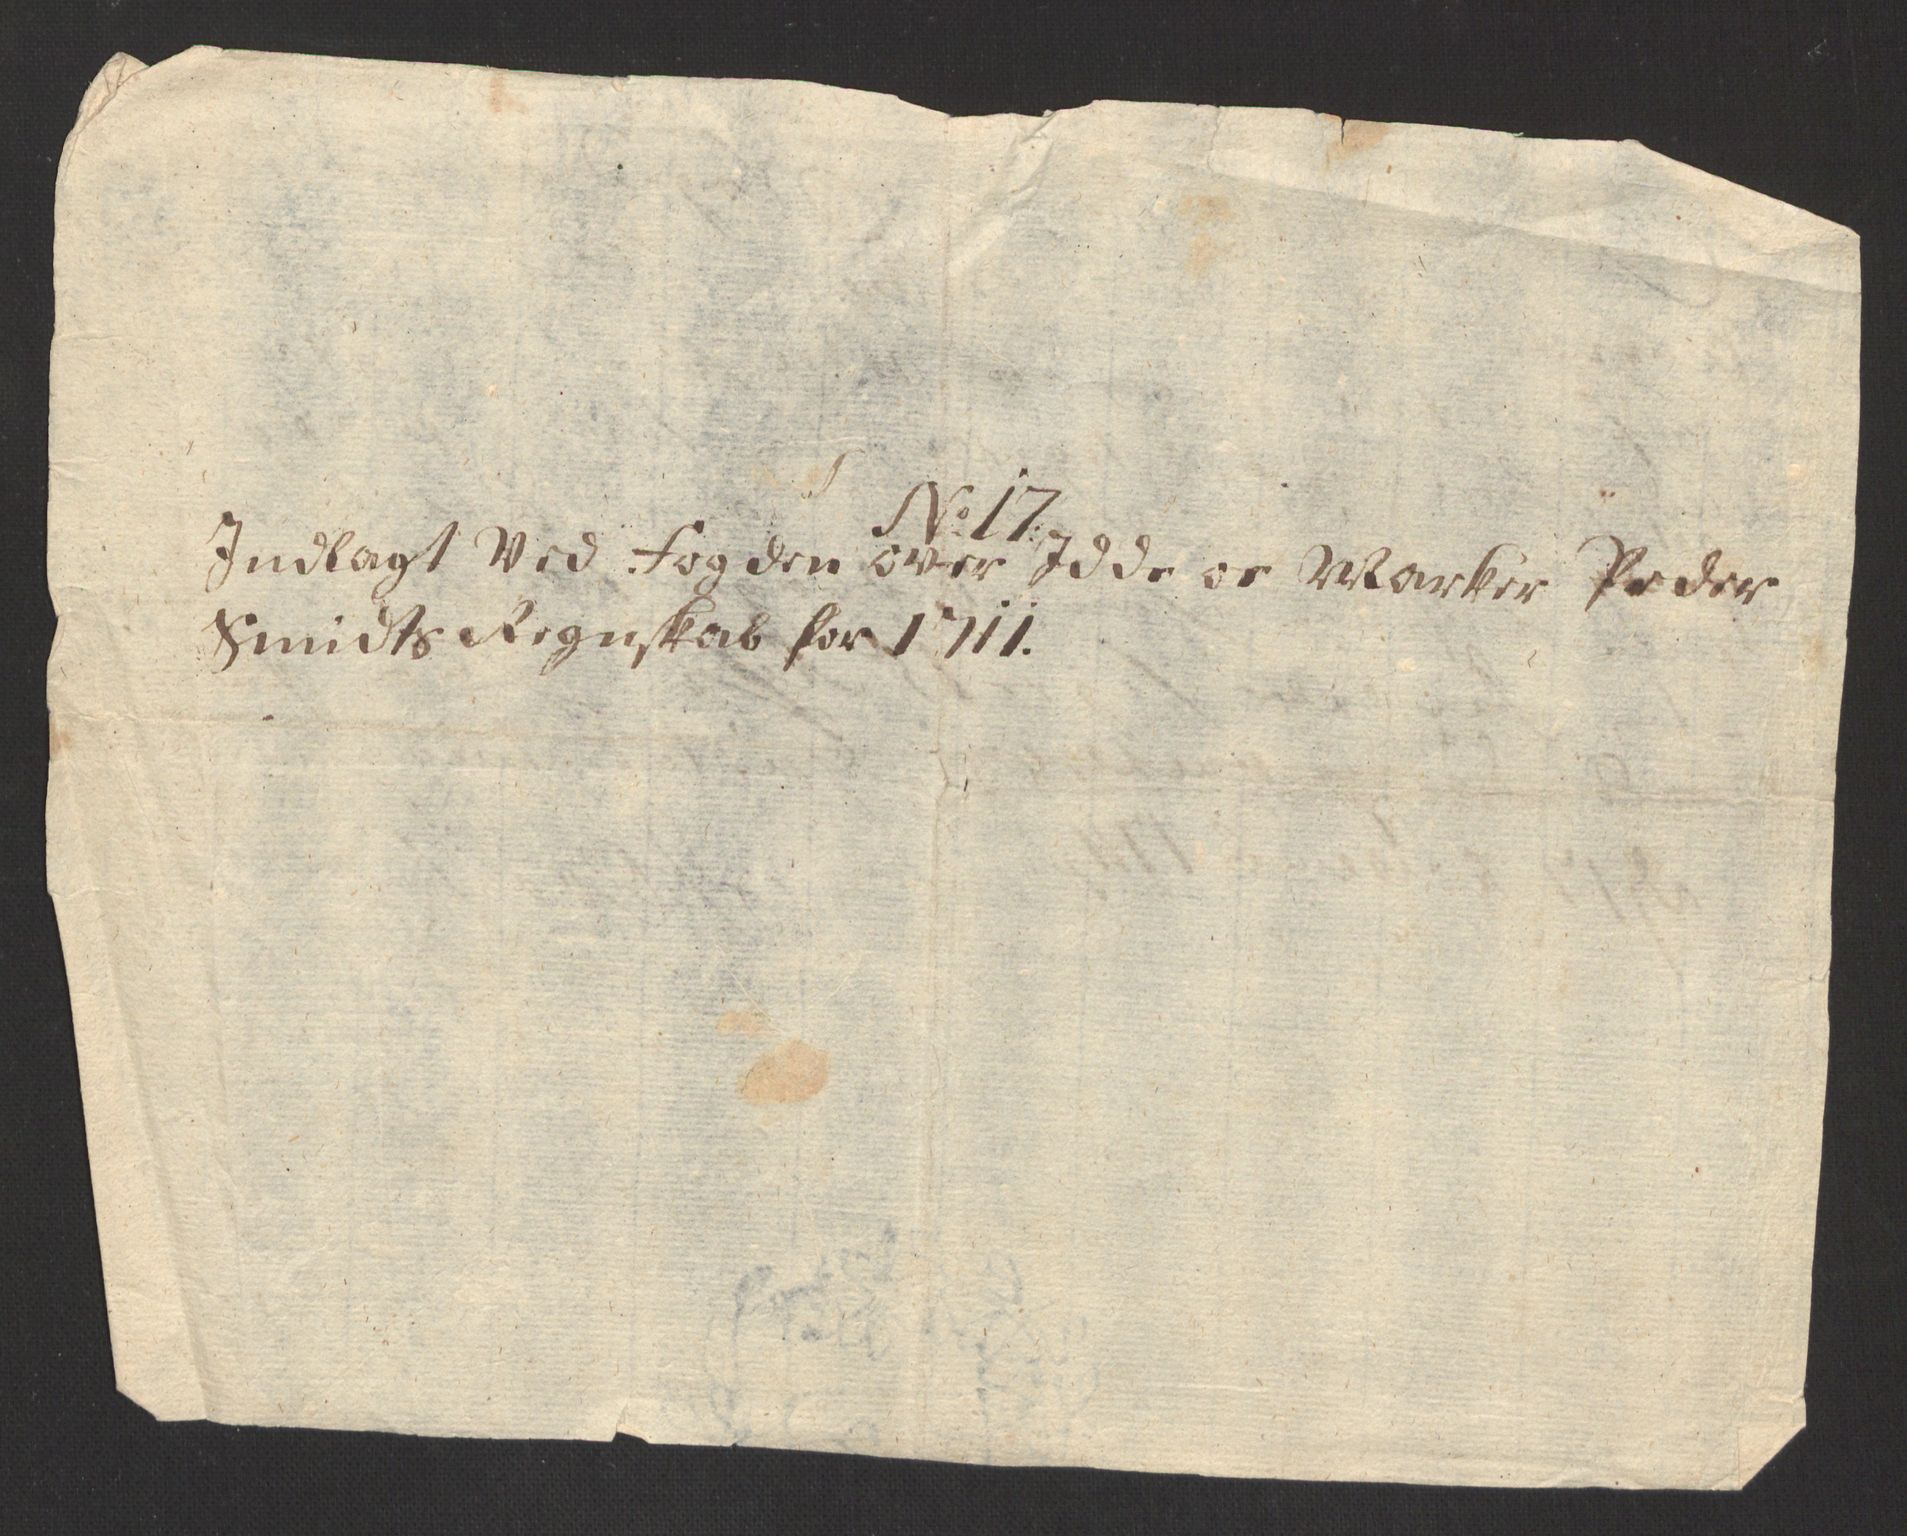 No: 17.
Indlagt Ved Fogden over Idde oc Marker Peder
Smidts Regnskab for 1711.